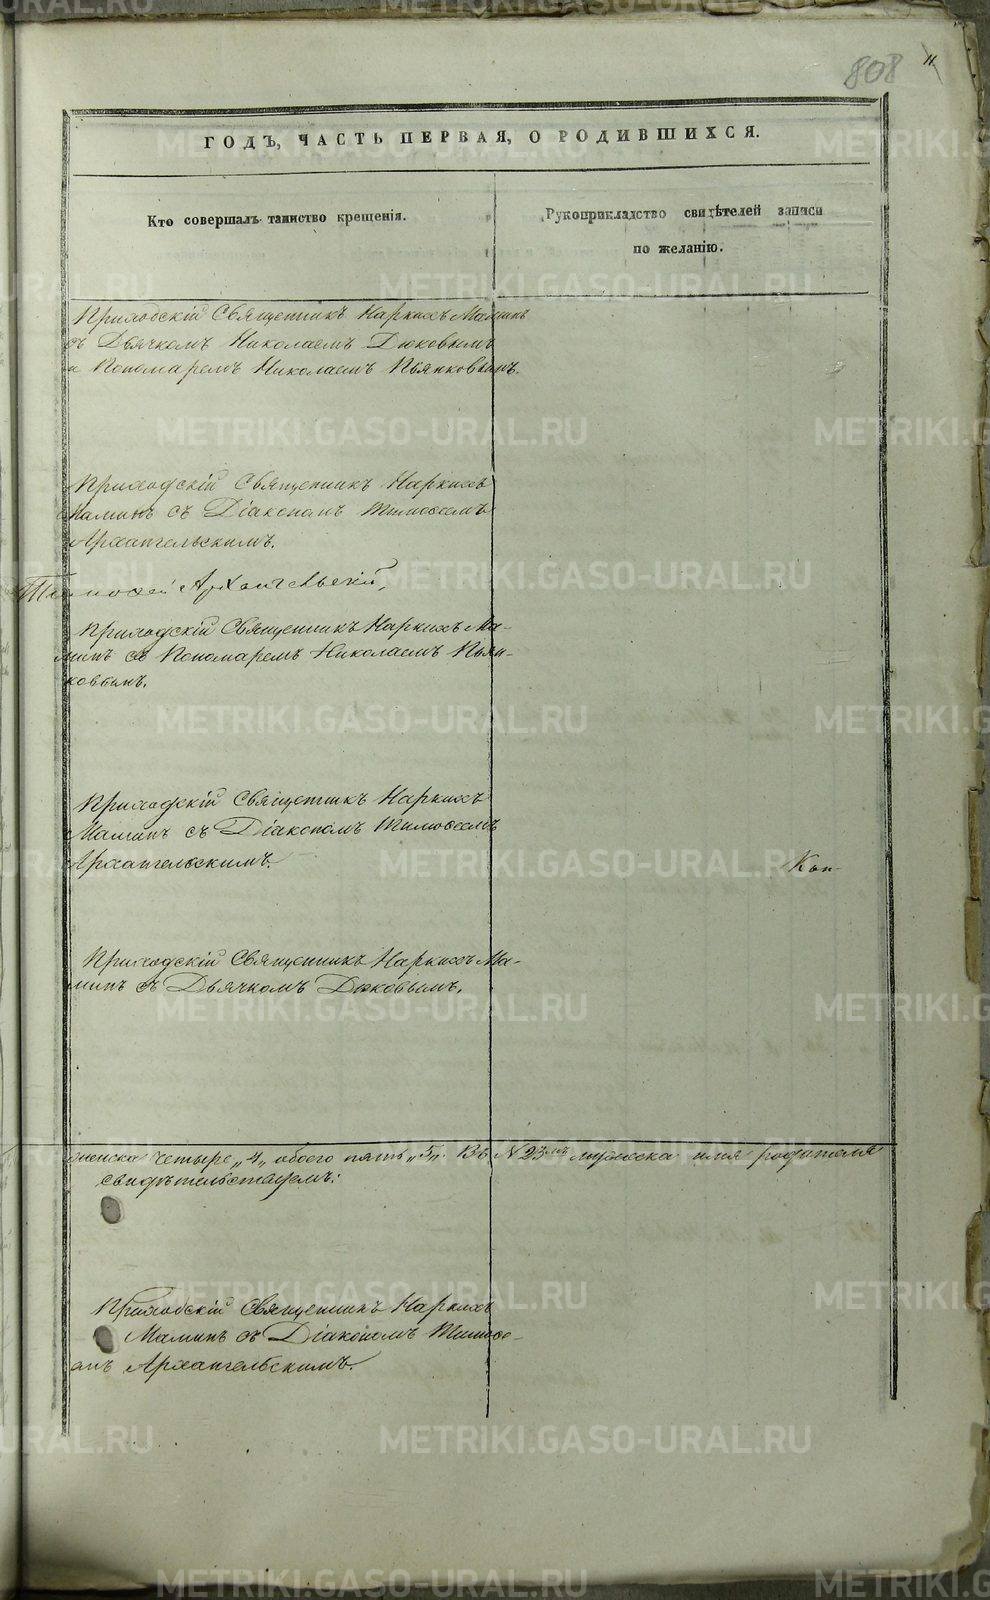 808
11
ГОДЪ, ЧАСТЬ ПЕРВАЯ, О РОДИВШИХСЯ.
Кто совершалъ таинство крещенія.
Рукоприкладство свидѣтелей записи
по желанію.
Приходскій Священникъ Наркисъ Маминъ
съ Дьячкомъ Николаемъ Дюковымъ
и Пономаремъ Николаемъ Пьянковымъ.
Приходскій Священникъ Наркисъ
Маминъ съ Діакономъ Тимоѳеемъ
Архангельскимъ.
Тимоѳей Архангельскій,
Приходскій Священникъ Наркисъ Ма-
минъ съ Пономаремъ Николаемъ Пьян-
ковымъ.
Приходскій Священникъ Наркисъ
Маминъ съ Діакономъ Тимоѳеемъ
Архангельскимъ.
Приходскій Священникъ Наркисъ Ма-
минъ съ Дьячкомъ Дюковымъ.
четыре „4„ обоего пять „5„. Въ № 23мъ имя родителя
свидѣтельствуемъ:
Приходскій Священникъ Наркисъ
Маминъ съ Діакономъ Тимоѳе-
емъ Архангельскимъ.
METRIKI.GASO-URAL.RU